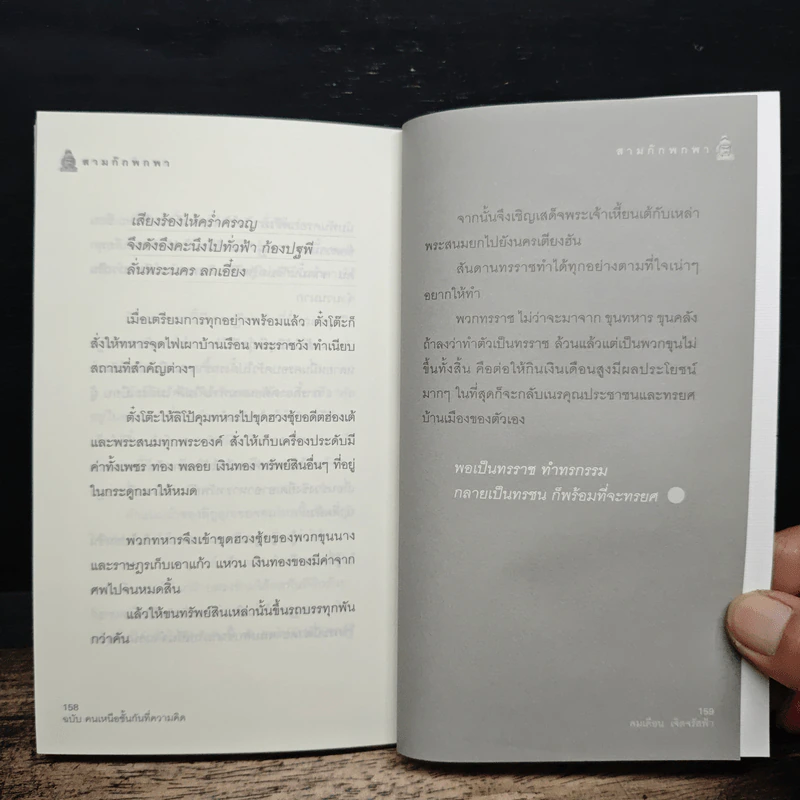 สามก๊กพกพา
เสียงร้องไห้คร่ำครวญ
จึงดังอึงคะนึงไปทั่วฟ้า ก้องปฐพี
ลั่นพระนคร ลกเอี๋ยง
เมื่อเตรียมการทุกอย่างพร้อมแล้ว ตั๋งโต๊ะก็
สั่งให้ทหารจุดไฟเผาบ้านเรือน พระราชวัง ทำเนียบ
สถานที่สำคัญต่างๆ
ตั๋งโต๊ะให้ลิโป้คุมทหารไปขุดฮวงซุ้ยอดีตฮ่องเต้
และพระสนมทุกพระองค์ สั่งให้เก็บเครื่องประดับมี
ค่าทั้งเพชร ทอง พลอย เงินทอง ทรัพย์สินอื่นๆ ที่อยู่
ในกระดูกมาให้หมด
พวกทหารจึงเข้าขุดฮวงซุ้ยของพวกขุนนาง
และราษฎรเก็บเอาแก้ว แหวน เงินทองของมีค่าจาก
ศพไปจนหมดสิ้น
แล้วให้ขนทรัพย์สินเหล่านั้นขึ้นรถบรรทุกพัน
กว่าคัน
158
ฉบับ คนเหนือชั้นกันที่ความคิด
สามก๊กพกพา
จากนั้นจึงเชิญเสด็จพระเจ้าเหี้ยนเต้กับเหล่า
พระสนมยกไปยังนครเตียงฮัน
สันดานทรราชทำได้ทุกอย่างตามที่ใจเน่าๆ
อยากให้ทำ
พวกทรราช ไม่ว่าจะมาจาก ขุนทหาร ขุนคลัง
ถ้าลงว่าทำตัวเป็นทรราช ล้วนแล้วแต่เป็นพวกขุนไม่
ขึ้นทั้งสิ้น คือต่อให้กินเงินเดือนสูงมีผลประโยชน์
มากๆ ในที่สุดก็จะกลับเนรคุณประชาชนและทรยศ
บ้านเมืองของตัวเอง
พอเป็นทรราช ทำทรกรรม
กลายเป็นทรชน ก็พร้อมที่จะทรยศ
159
ลมเดือน เจิดจรัสฟ้า